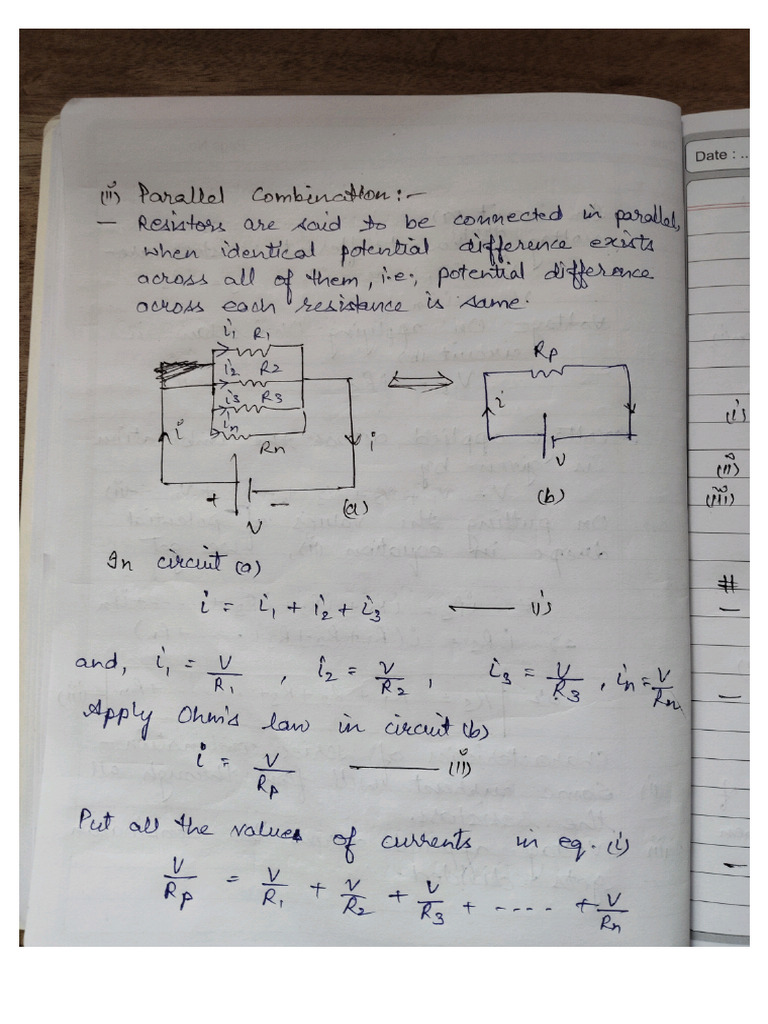 Date : ..
(ii) Parallel Combination:-
- Resistors are said to be connected in parallel,
when identical potential difference exists
across all of them, i.e., potential difference
across each resistance is same.
i1 R1
i2 R2
i3 R3
in Rn
i
i
+ V -
(a)
Rp
i
V
(b)
(i)
(ii)
(iii)
#
-
-
-
In circuit (a)
i = i1 + i2 + i3 —— (i)
and, i1 = V/R1 , i2 = V/R2 , i3 = V/R3 , in = V/Rn
Apply Ohm's law in circuit (b)
i = V/Rp —— (ii)
Put all the values of currents in eq. (i)
V/Rp = V/R1 + V/R2 + V/R3 + ..... + V/Rn